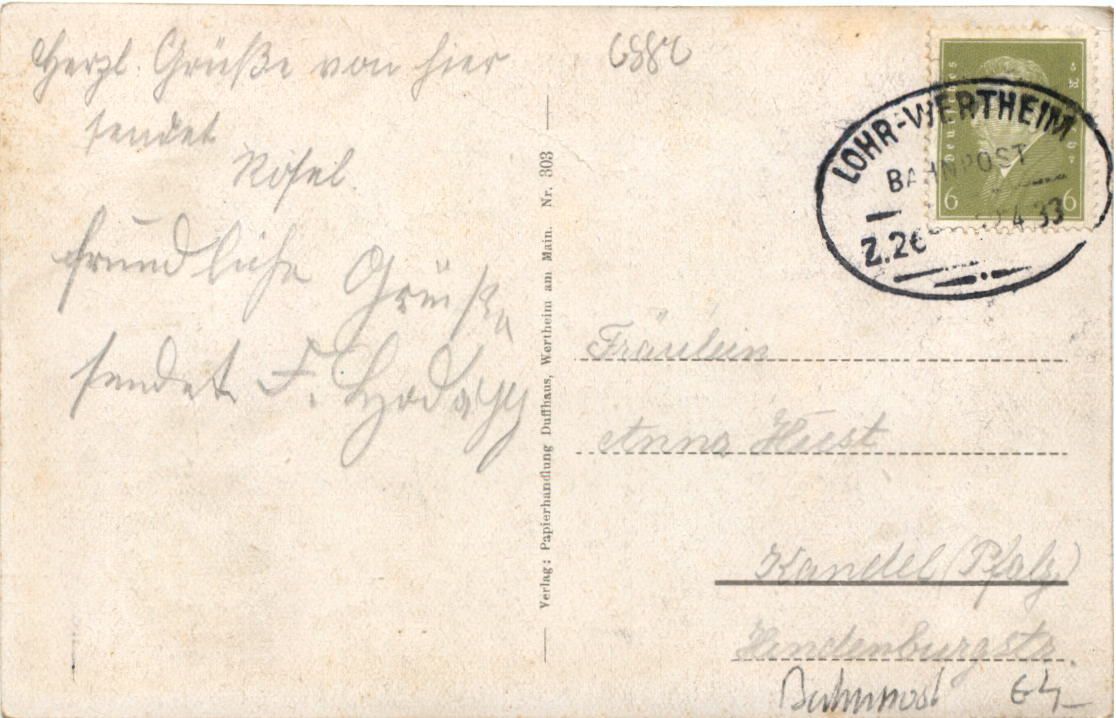 Herzl. Grüße von hier
sendet
Rösel.
freundliche Grüße
sendet F.
Verlag: Papierhandlung Duffhaus, Wertheim am Main. Nr. 303
LOHR-WERTHEIM
BAHNPOST
Z.26 4 33
6 6
Fräulein
Anna Hust
Kandel (Pfalz)
Hindenburgstr.
Bahnpost